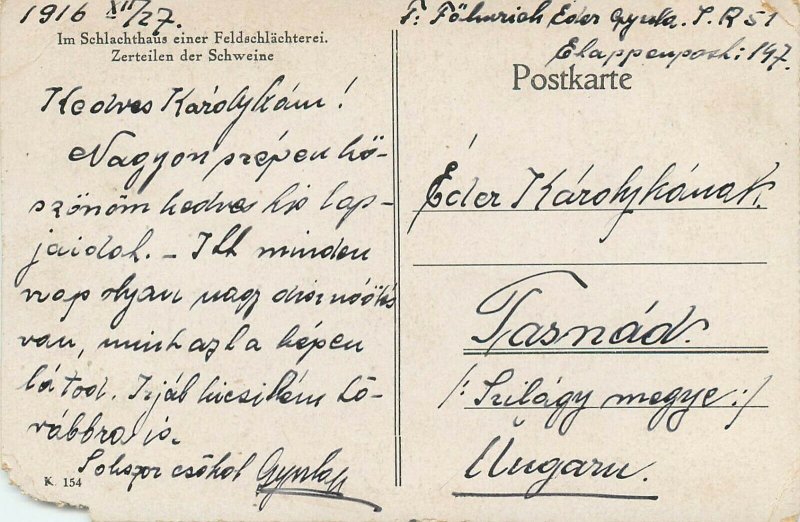 1916 XII/27.
Im Schlachthaus einer Feldschlächterei.
Zerteilen der Schweine
Kedves Károlykám!
Nagyon szépen kö-
szönöm kedves kis lap-
jaidat. – Itt minden
nap olyan nagy disznóölés
van, mint azt a képen
látod. Irjál kicsikém to-
vábbra is.
Sokszor csókol
K. 154
F: Fähnrich Eder Gyula. I. R 51
Etappenpost: 197.
Postkarte
Éder Károlykának.
Tasnád.
/: Szilágy megye :/
Ungarn.